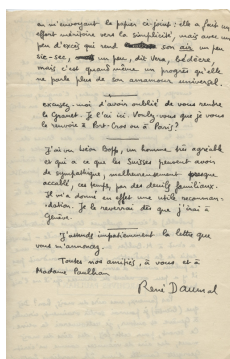 en m'envoyant le papier ci-joint : elle a fait un
effort méritoire vers la simplicité, mais avec un
peu d'excès qui rend son air un peu
sic-sec, un peu, dit Vera, bédécre,
mais c'est quand même un progrès qu'elle
ne parle plus de son ansamour universal.
Excusez-moi d'avoir oublié de vous rendre
le Granet. Je l'ai ici. Voulez-vous que je vous
le renvoie à Port-Cros ou à Paris?
J'ai vu hier Bopp, un homme très agréable
et qui a ce que les Suisses peuvent avoir
de sympathique, malheureusement presque
accablé, ces temps, par des deuils familiaux.
Il m'a donné en effet une utile recomman-
dation. Je le reverrai dès que j'irai à
Genève.
J'attends impatiemment la lettre que
vous m'annoncez.
Toutes nos amitiés, à vous et à
Madame Paulhan
René Daumal